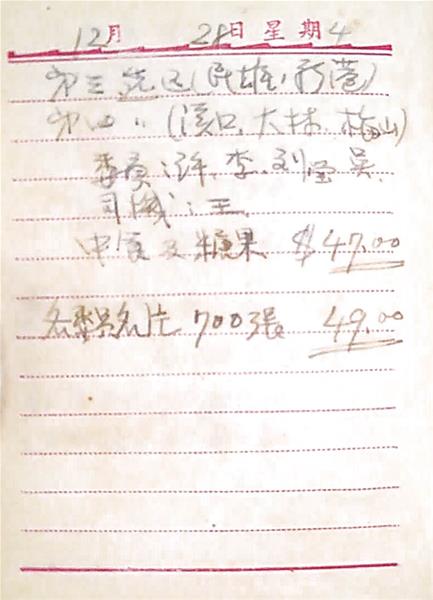 12月 28日星期4
第三選区(民雄、新港)
第四〃(溪口、大林、梅山)
委員:許、李、刘、吳
司機:王
中食及糖果 $47.00
各委員名片 700張 49.00